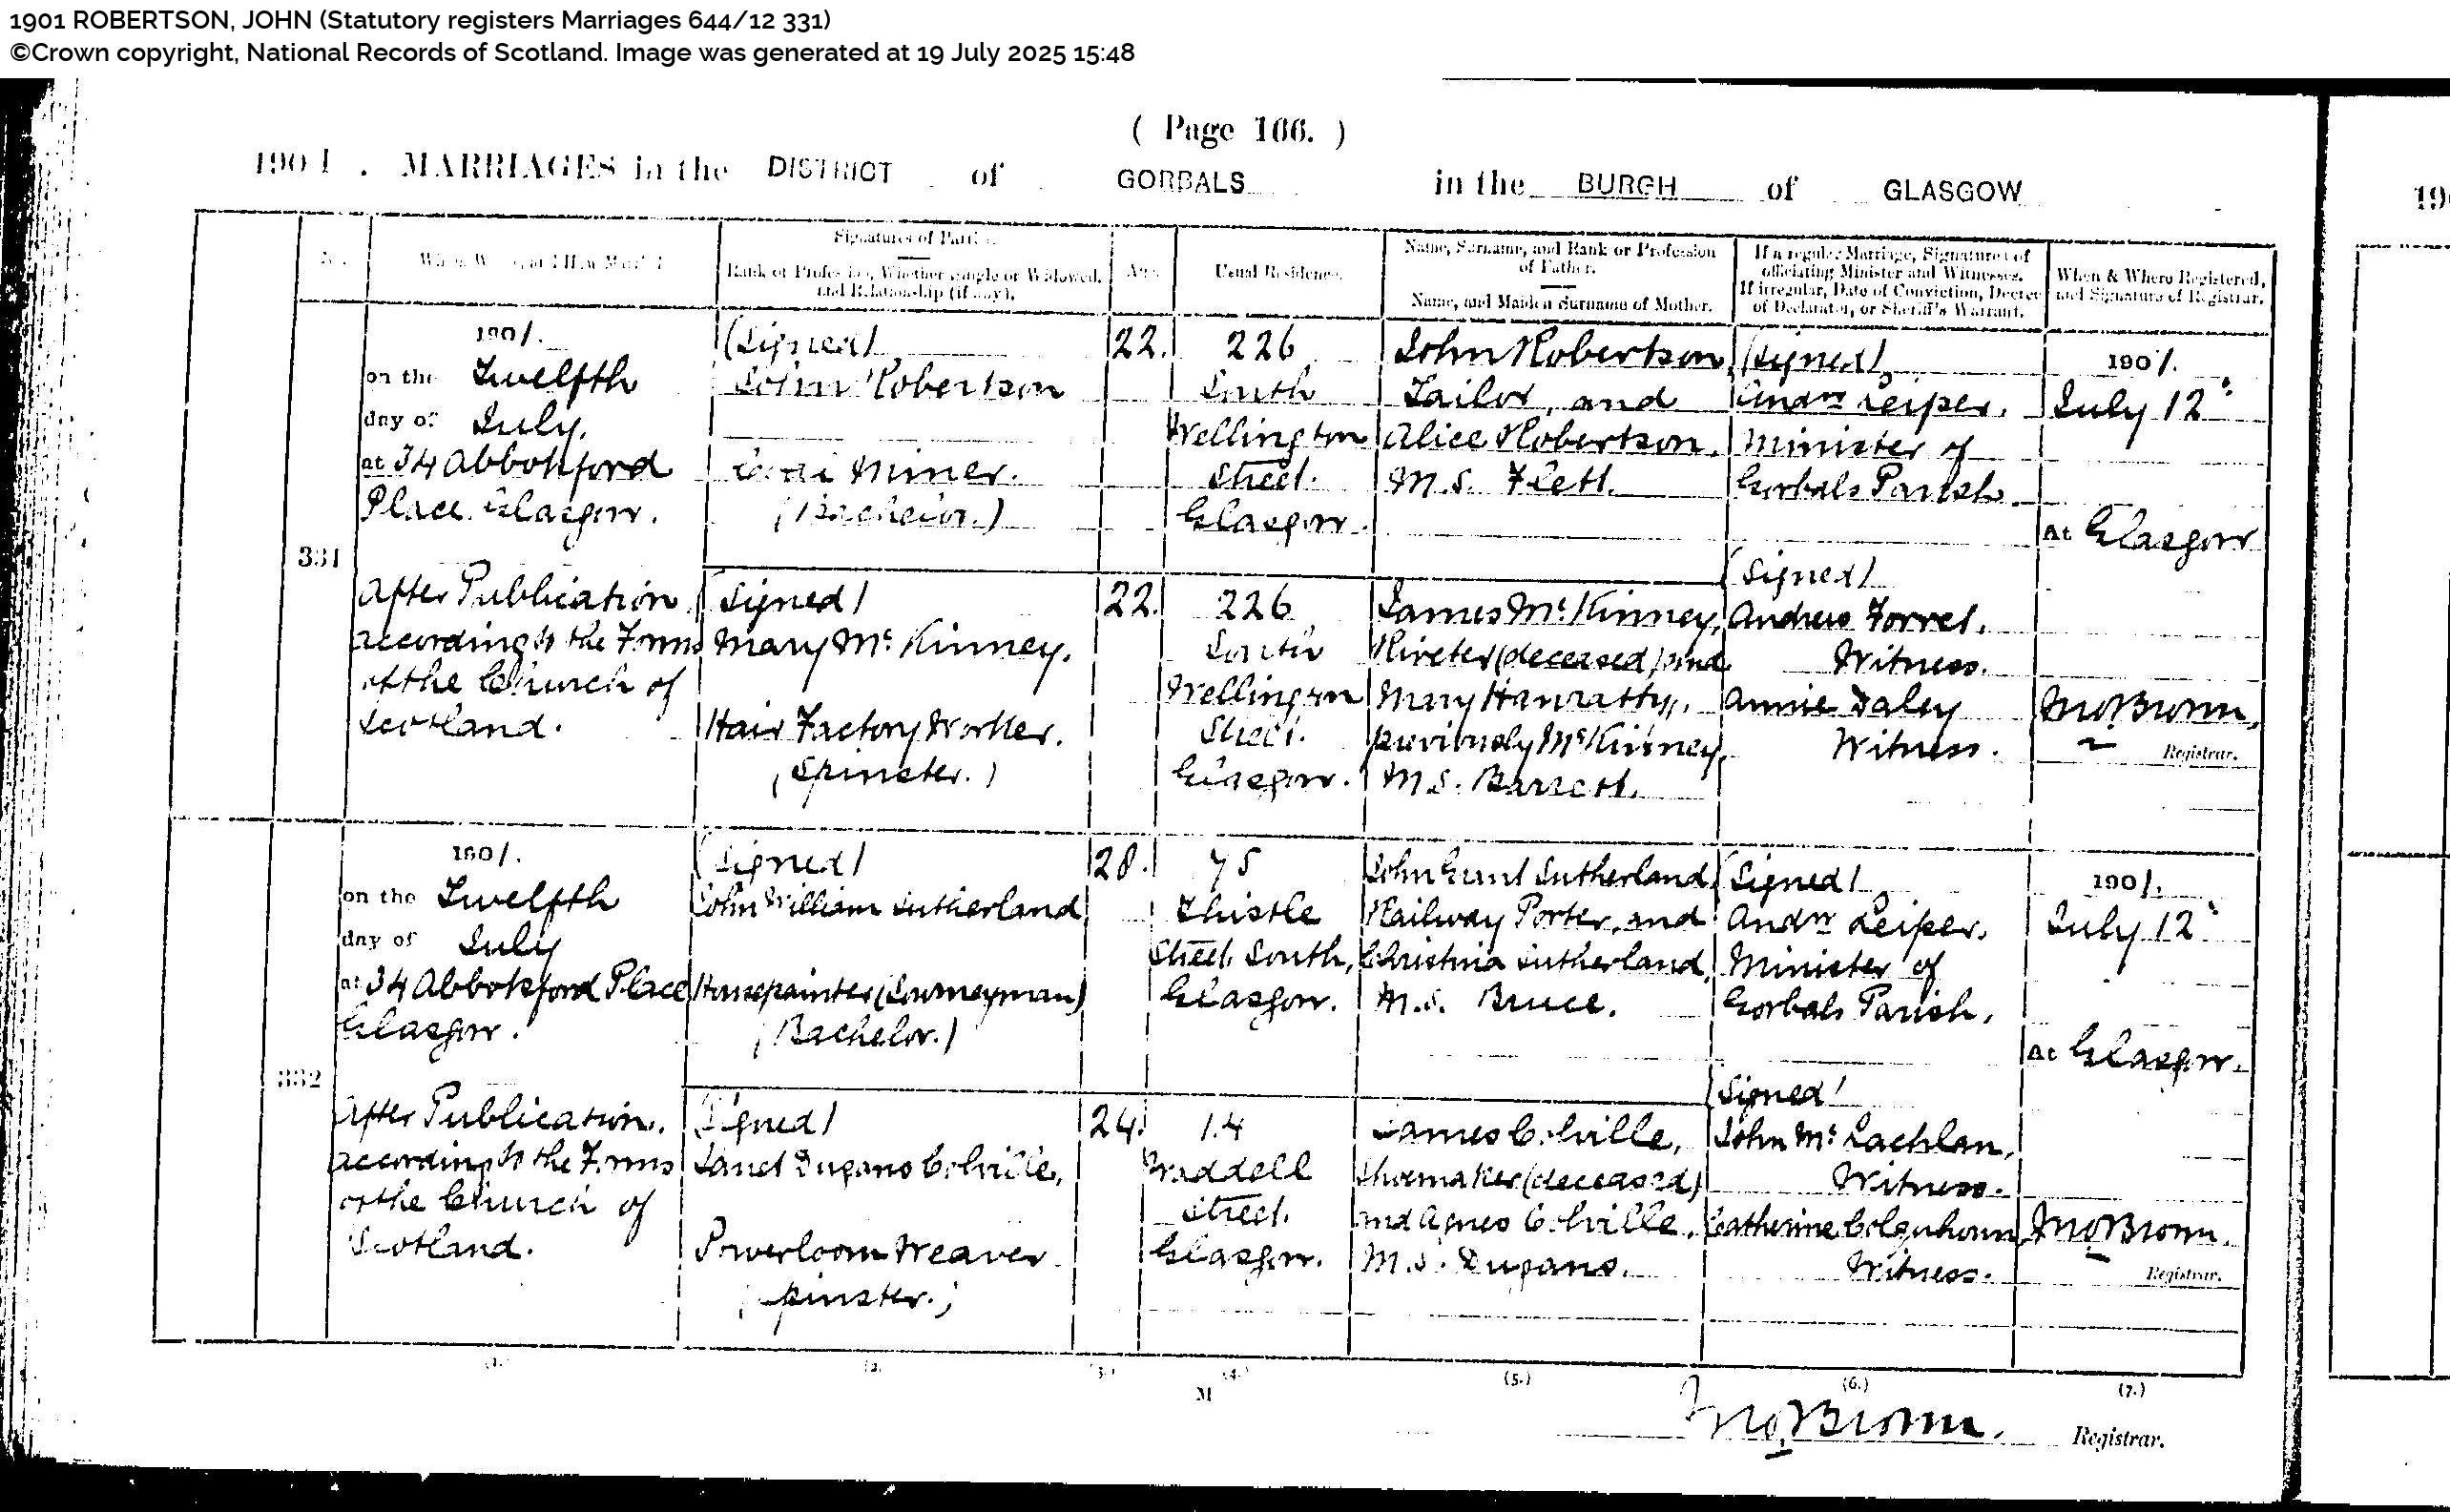 1901 ROBERTSON, JOHN (Statutory registers Marriages 644/12 331)
©Crown copyright, National Records of Scotland. Image was generated at 19 July 2025 15:48
( Page 166. )
1901. MARRIAGES in the DISTRICT of GORBALS in the BURGH of GLASGOW
No.
When, Where, and How Married
Signatures of Parties.
Rank or Profession, Whether Single or Widowed, and Relationship (if any).
Age.
Usual Residence.
Name, Surname, and Rank or Profession of Father.
Name, and Maiden Surname of Mother.
If a regular Marriage, Signatures of officiating Minister and Witnesses.
If irregular, Date of Conviction, Decree of Declarator, or Sheriff's Warrant.
When & Where Registered, and Signature of Registrar.
331
1901.
on the Twelfth
day of July.
at 34 Abbotsford
Place. Glasgow.
After Publication
according to the Forms
of the Church of
Scotland.
(Signed)
John Robertson
Coal Miner.
(Bachelor.)
22.
226
South
Wellington
Street.
Glasgow.
John Robertson,
Tailor, and
Alice Robertson,
M.S. Flett.
(Signed)
Andw Leiper.
Minister of
Gorbals Parish.
1901.
July 12
At Glasgow
(Signed)
Mary McKinney.
Hair Factory Worker.
(Spinster.)
22.
226
South
Wellington
Street.
Glasgow.
James McKinney,
Riveter (deceased) and
Mary Hanratty,
previously McKinney,
M.S. Barrett.
(Signed)
Andrew Torret.
Witness.
Annie Daley
Witness.
Jno. Brown,
Registrar.
332
1901.
on the Twelfth
day of July
at 34 Abbotsford Place
Glasgow.
After Publication.
according to the Forms
of the Church of
Scotland.
(Signed)
John William Sutherland
Housepainter (Journeyman)
(Bachelor.)
28.
75
Thistle
Street South,
Glasgow.
John Grant Sutherland,
Railway Porter, and
Christina Sutherland,
M.S. Bruce.
(Signed)
Andw Leiper.
Minister of
Gorbals Parish.
1901.
July 12
At Glasgow.
(Signed)
Janet Dugans Colville,
Powerloom Weaver
(Spinster.)
24.
14
Braddell
Street.
Glasgow.
James Colville,
Shoemaker (deceased)
and Agnes Colville,
M.S. Dugans.
(Signed)
John McLachlan,
Witness.
Catherine Colquhoun
Witness.
Jno. Brown.
Registrar.
(1.) (2.) (3.) (4.) (5.) (6.) (7.)
M
Jno. Brown. Registrar.